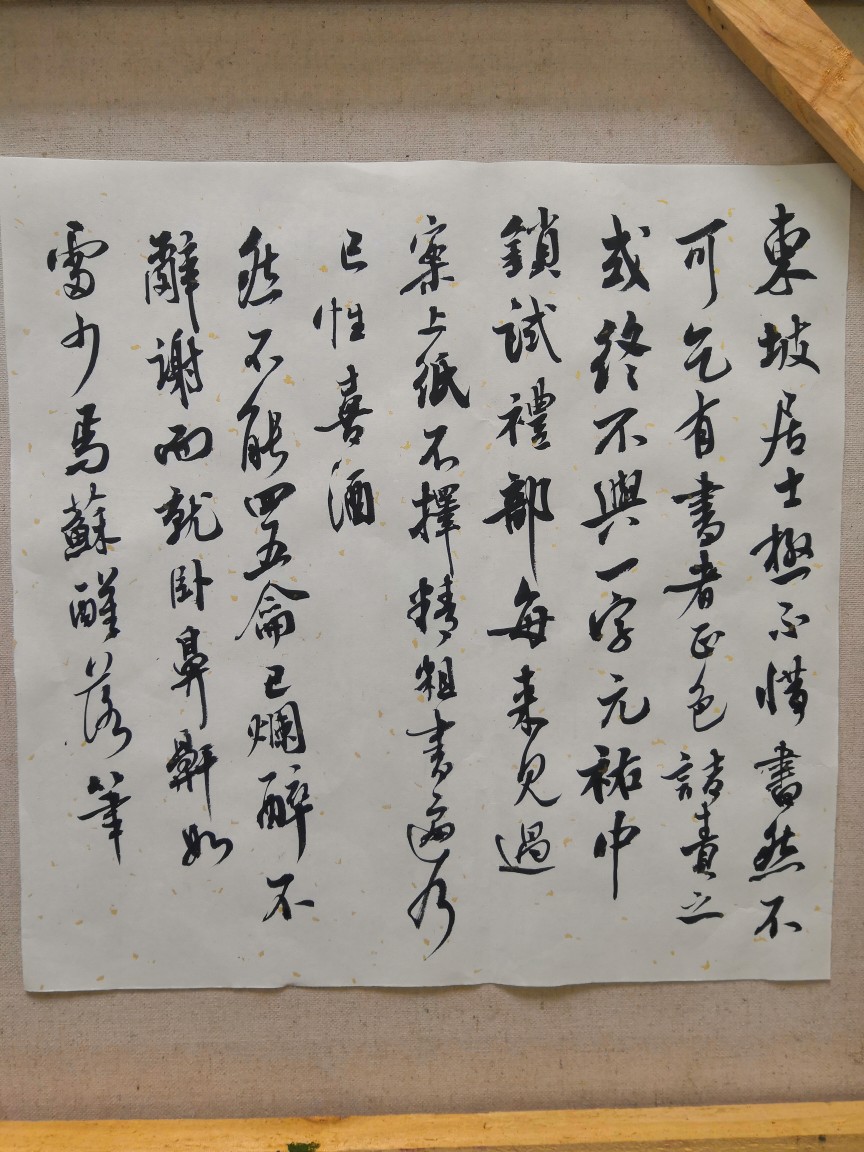 東坡居士極不惜書然不
可乞有書者正色詰責之
或終不與一字元祐中
鎖試禮部每来見過
案上紙不擇精粗書遍乃
已性喜酒
然不能四五龠已爛醉不
辭謝而就卧鼻鼾如
雷少焉蘇醒落筆